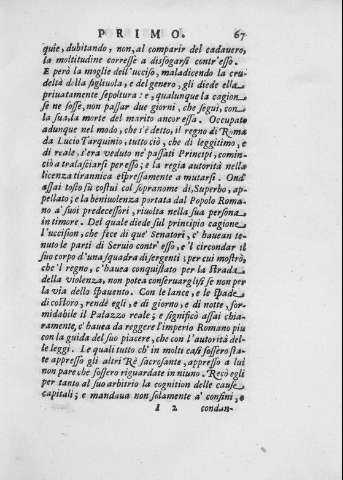 PRIMO. 67
quie, dubitando, non, al comparir del cadauero,
la moltitudine corresse a disfogarsi contr'esso.
E però la moglie dell'ucciso, maladicendo la cru-
deltà della figliuola, e del genero, gli diede ella
priuatamente sepoltura: e, qualunque la cagion
se ne fosse, non passar due giorni, che seguì, con
la sua, la morte del marito ancor essa. Occupato
adunque nel modo, che s'è detto, il regno di Roma
da Lucio Tarquinio, tutto ciò, che di legittimo, e
di reale, s'era veduto ne' passati Principi, comin-
ciò a tralasciarsi per esso; e la regia autorità nella
licenza tirannica espressamente a mutarsi. Ond'
assai tosto fù costui col sopranome di Superbo, ap-
pellato; e la beniuolenza portata dal Popolo Roma-
no a' suoi predecessori, riuolta nella sua persona
in timore. Del quale diede sul principio cagione
l'uccision, che fece di que' Senatori, c' haueano te-
nuto le parti di Seruio contr' esso, e'l circondar il
suo corpo d'una squadra di sergenti; per cui mostrò,
che'l regno, c' hauea conquistato per la strada
della violenza, non potea conseruarglisi se non per
la via dello spauento. Con le lance, e le spade
di costoro, rendè egli, e di giorno, e di notte, for-
midabile il Palazzo reale; e significò assai chia-
ramente, c' hauea da reggere l'imperio Romano più
con la guida del suo piacere, che con l'autorità del-
le leggi. Le quali tutto ch' in molti casi fossero sta-
te appresso gli altri Rè sacrosante, appresso a lui
non pare che fossero riguardate in niuno. Recò egli
per tanto al suo arbitrio la cognition delle cause
capitali; e mandaua non solamente a' confini, e
I 2 condan-